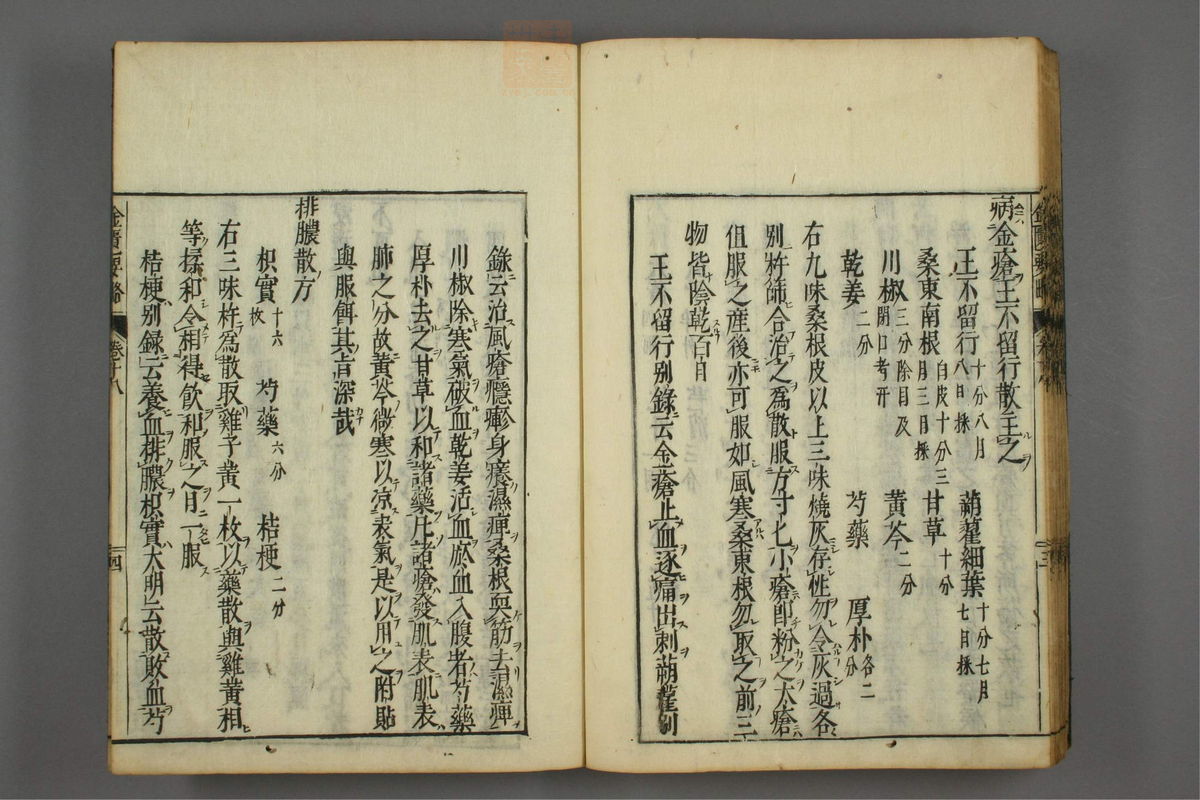 病金瘡王不留行散主之
王不留行十分八月八日採 蒴藋細葉十分七月七日採
桑東南根白皮十分三月三日採 甘草十分
川椒三分除目及閉口者汗 黃芩二分
乾姜二分 芍藥 厚朴各二分
右九味桑根皮以上三味燒灰存性勿令灰過各
別杵篩合治之爲散服方寸匕小瘡即粉之大瘡
但服之産後亦可服如風寒桑東根勿取之前三
物皆陰乾百日
王不留行别錄云金瘡止血逐痛出刺蒴藋别
錄云治風瘡癮瘮身癢濕痺桑根
筋去濕痺
川椒除寒氣破血乾姜活血瘀血入腹者芍藥
厚朴去之甘草以和諸藥凡諸瘡發肌表肌表
肺之分故黃芩微寒以凉表氣是以用之附貼
與服餌其旨深哉
排膿散方
枳實十六枚 芍藥六分 桔梗二分
右三味杵爲散取雞子黃一枚以藥散與雞黃相
等揉和令相得飲和服之日一服
桔梗别錄云養血排膿枳實大明云散敗血芍
卷十八
四
三